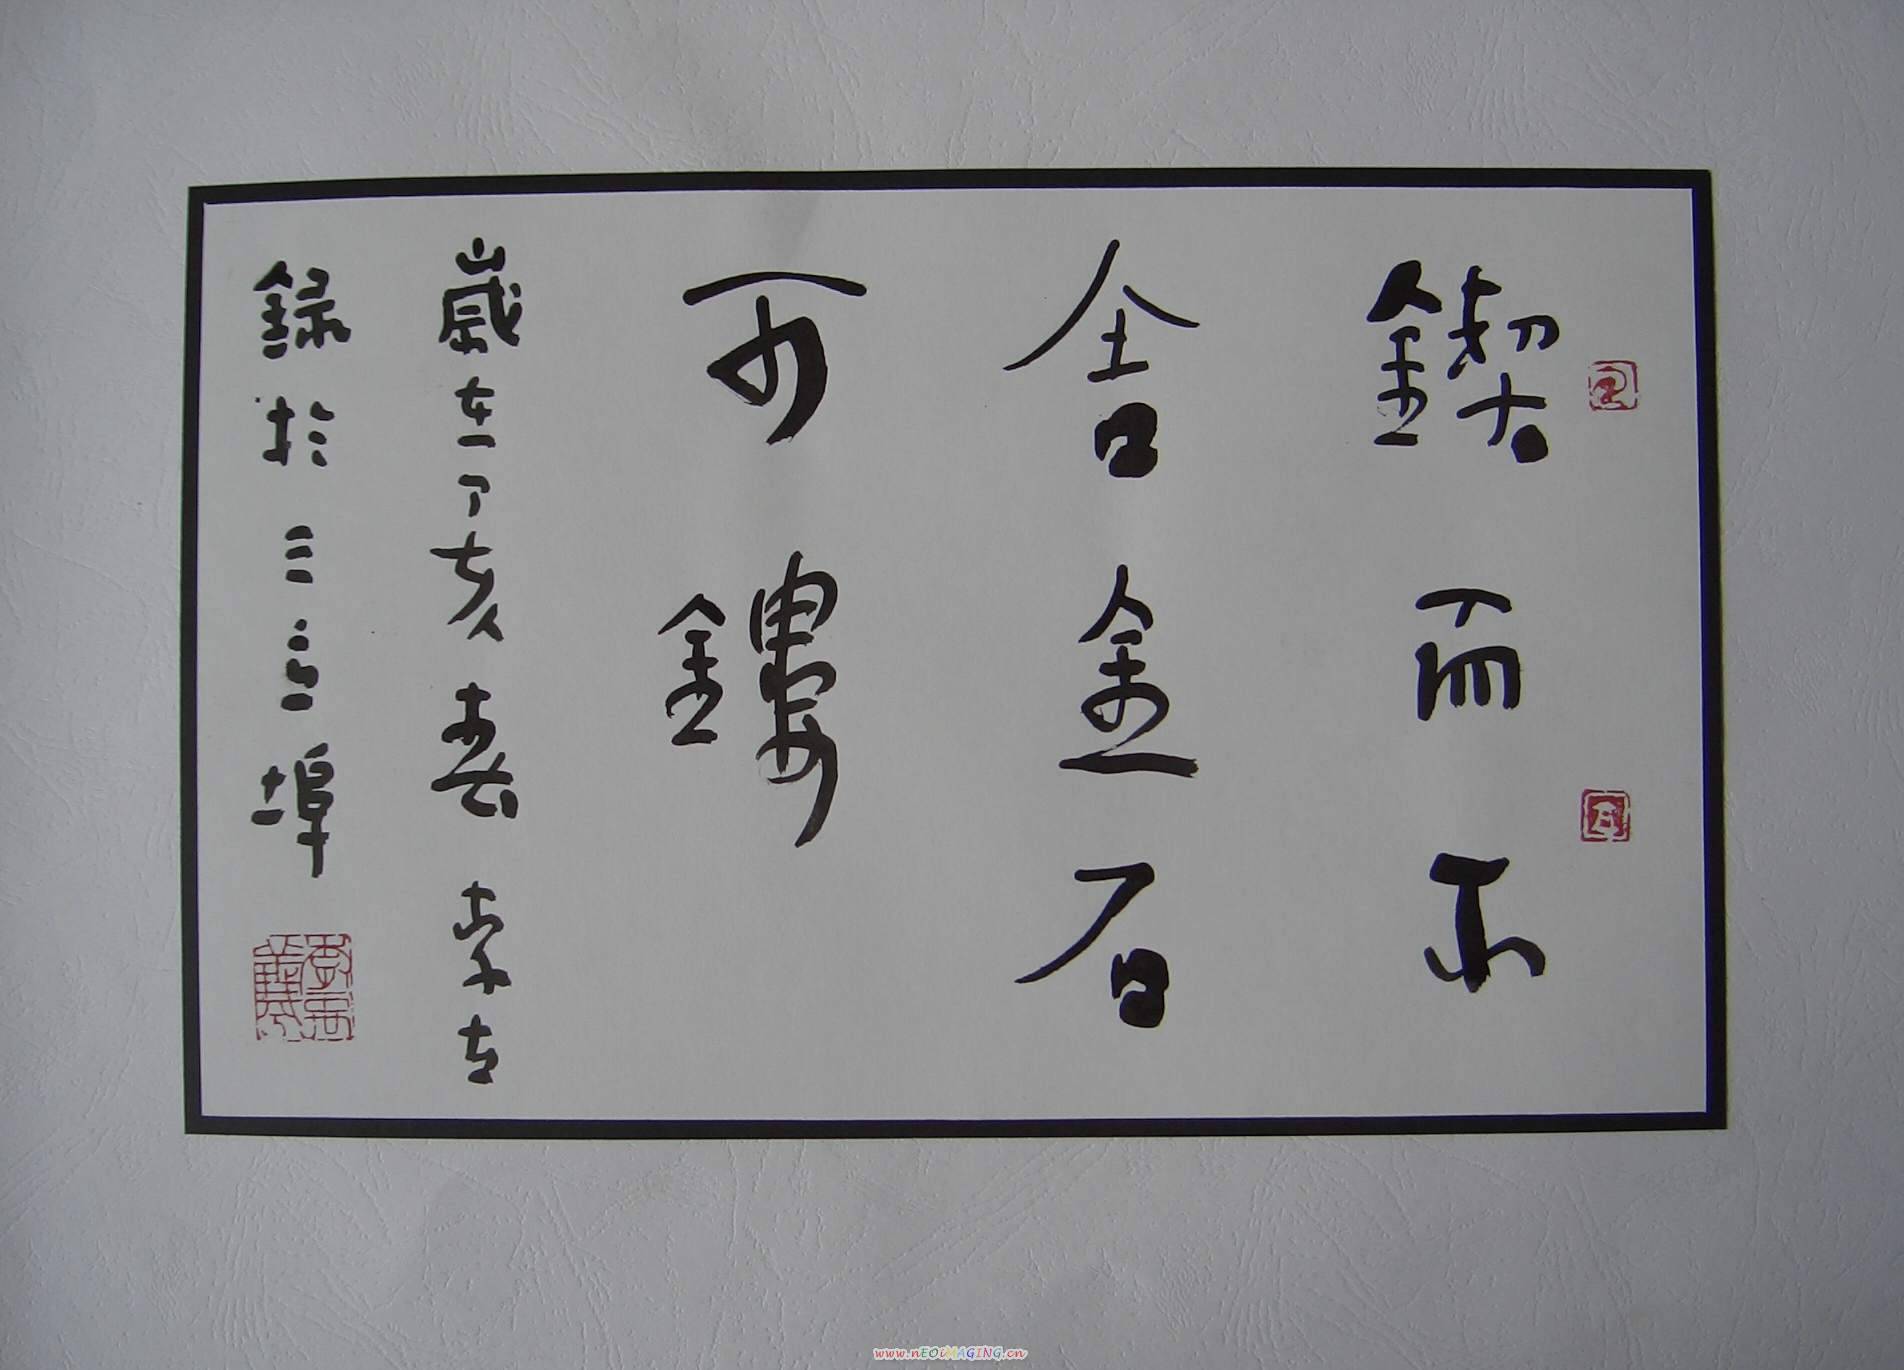 鍥而不
舍金石
可鏤
歲在丁亥春李
錄於三立埠
www.nEOiMAGiNG.cn